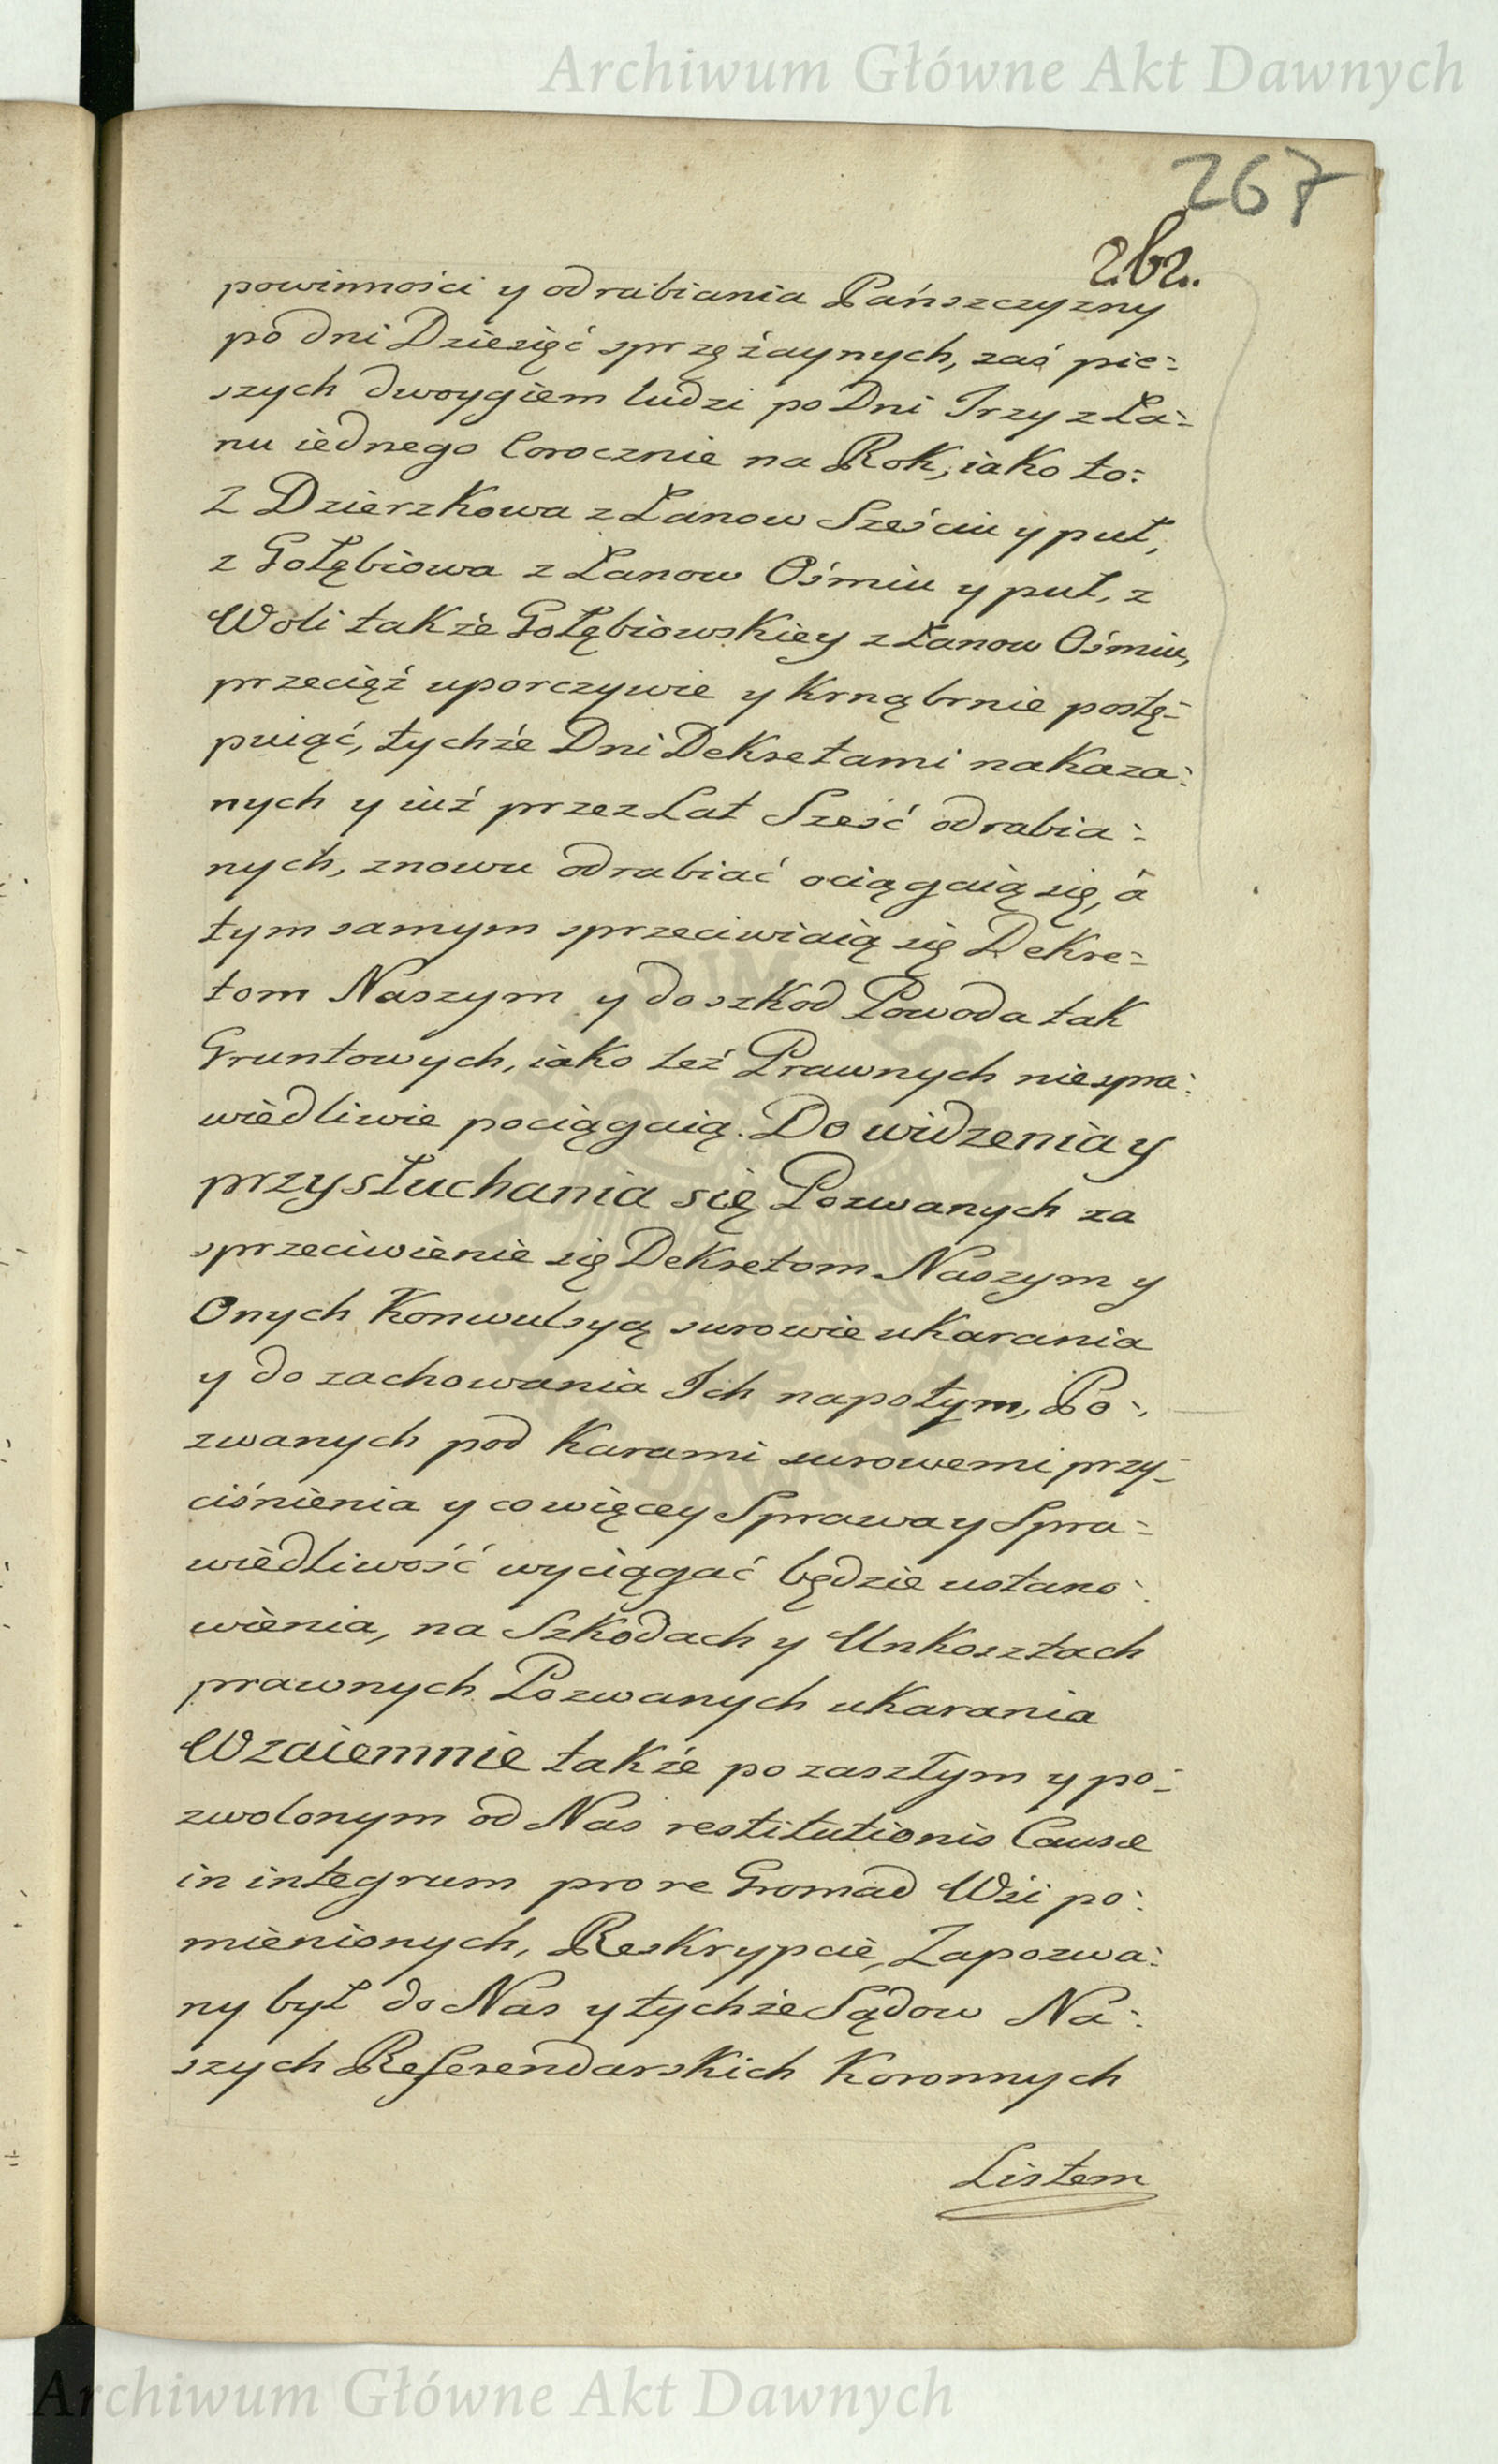 Archiwum Główne Akt Dawnych
267
262.
powinności y odrabiania Pańszczyzny
po dni Dziesięć sprzężaynych, zaś pie-
szych dwoygiem ludzi po Dni Trzy z Ła-
nu iednego Corocznie na Rok, iako to:
Z Dzierzkowa z Łanow Sześciu y puł,
z Gołębiowa z Łanow Ośmiu y puł, z
Woli także Gołębiowskiey z Łanow Ośmiu,
przecięż uporczywie y Krnąbrnie postę-
puiąć, tychże Dni Dekretami nakaza-
nych y iuż przez Lat Sześć odrabia-
nych, znowu odrabiać ociągaią się, a
tym samym sprzeciwiaią się Dekre-
tom Naszym y do szkod Powoda tak
Gruntowych, iako też Prawnych niespra-
wiedliwie pociągaią. Do widzenia y
przysłuchania się Pozwanych za
sprzeciwienie się Dekretom Naszym y
Onych Konwulsyą surowie ukarania
y do zachowania Ich napotym, Po-
zwanych pod Karami surowemi przy-
ciśnienia y co więcey Sprawa y Spra-
wiedliwość wyciągać będzie ustano-
wienia, na Szkodach y Unkosztach
prawnych Pozwanych ukarania
Wzaiemnie także po zaszłym y po-
zwolonym od Nas restitutionis Causæ
in integrum pro re Gromad Wśi po-
mienionych, Reskrypcie, Zapozwa-
ny był do Nas y tychże Sądow Na-
szych Referendarskich Koronnych
Listem
Archiwum Główne Akt Dawnych